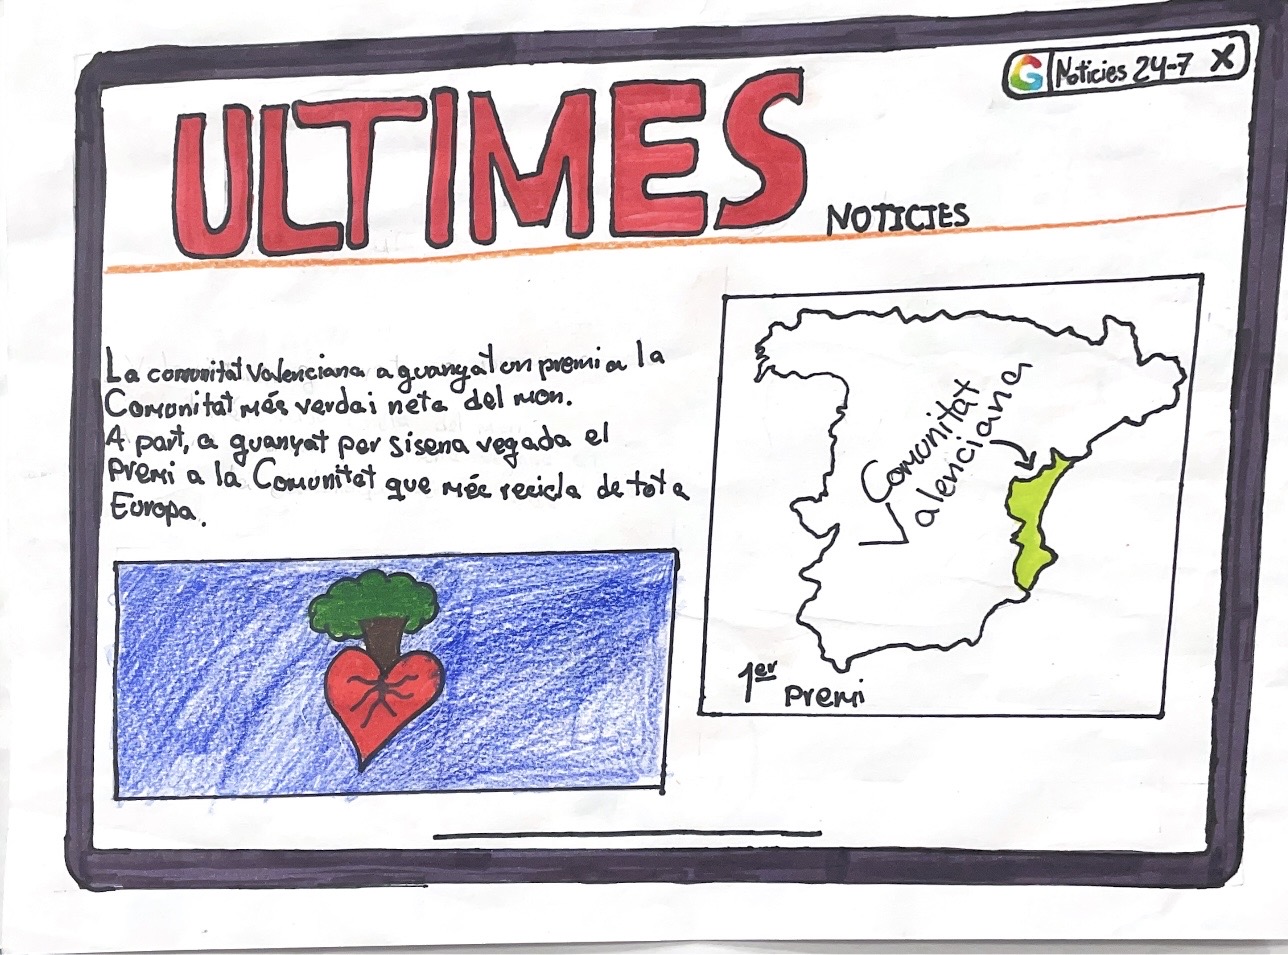 G Noticies 24-7 X
ULTIMES
NOTICIES
La comunitat valenciana a guanyat un premi a la
Comunitat més verda i neta del mon.
A part, a guanyat per sisena vegada el
Premi a la Comunitat que més recicla de tota
Europa.
Comunitat
Valenciana
1er
Premi